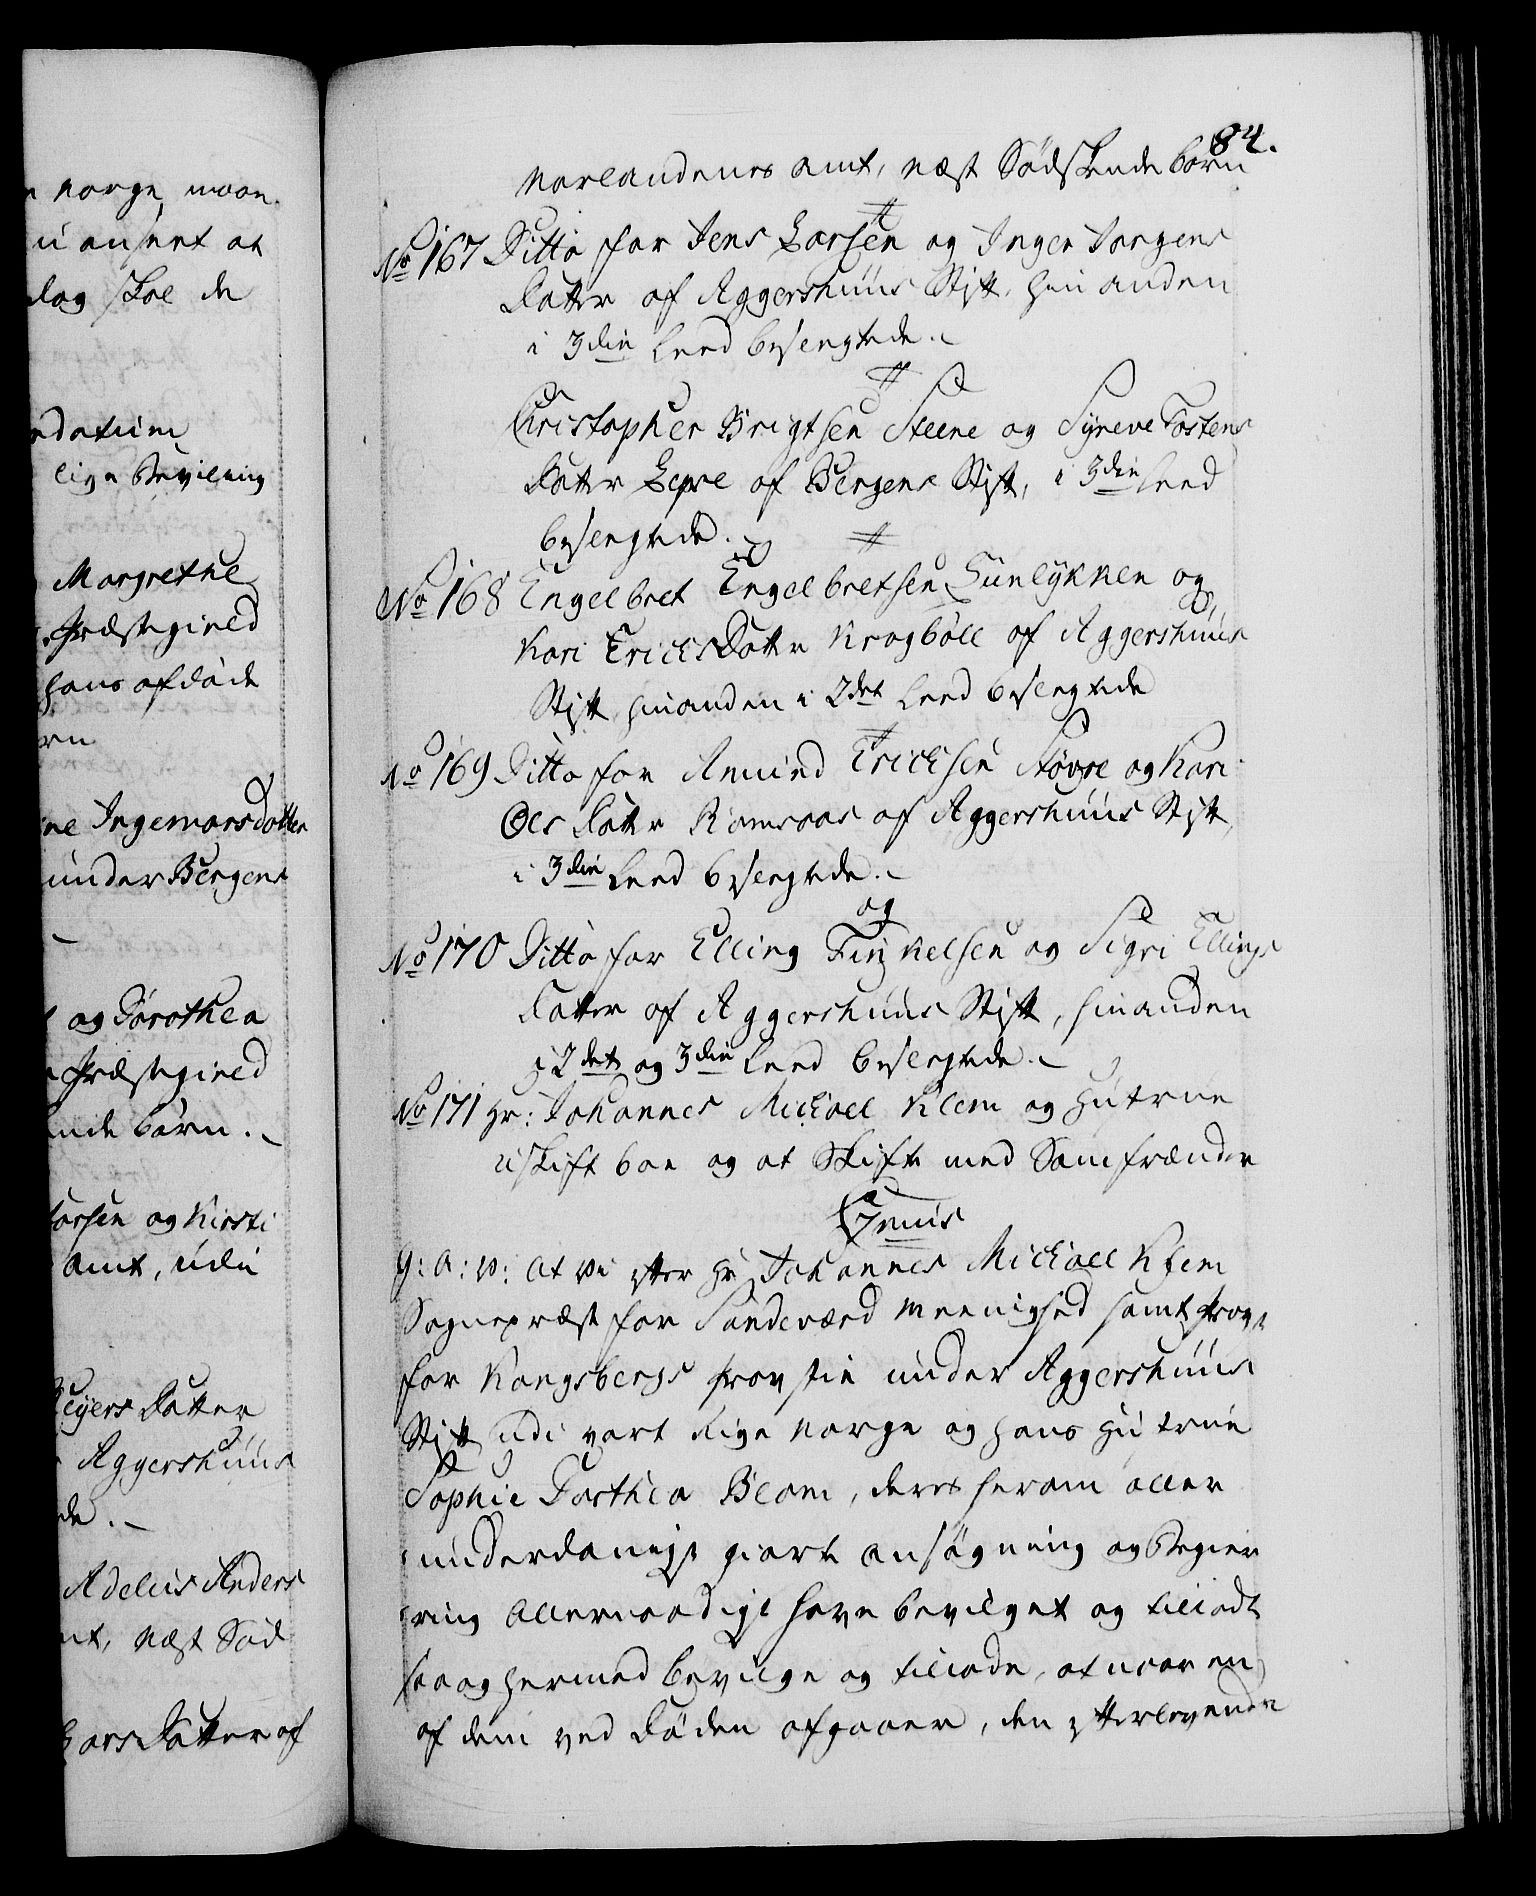 n Norge, maae
u ansent at
dag skal de
ndatum
lige Bevilning
Margrethe
Præstegield
hans afdøde
rn
ne Ingemarsdatter
under Bergens
og Dorothea
Præstegield
ende börn.
larsen og Kirsti
Amt, uden
Reyers Datter
Aggershuus
de.
Adelus Anders
mt, næst Sød
Lars Datter af
84.
Norlandenes Amt, næst Södskende börn
No 167 Ditto for Jens Larsen og Inger Jørgens
Datter af Aggershuus Stift, hinanden
i 3die Leed besvogrede.
Christopher Brigtsen Steene og Syneve Tostens
Datter Lepse af Bergens Stift, i 3die Leed
besvogrede.
No 168 Engelbret Engelbretsen Lunlykken og
Kari Erichs Datter Krogböll af Aggershuus
Stift hinanden i 2det Leed besvogrede
No 169 Ditto for Amund Erichsen Støvre og Kari
Ols Datter Ramsaas af Aggershuus Stift,
i 3die Leed besvogrede.
og
No 170 Ditto for Elling Finkelsen og Sigri Ellings
Datter af Aggershuus Stift, hinanden
i 2det og 3die Leed besvogrede.
No 171 Hr: Johannes Michael Klem og Hustrue
uskift boe og at Skifte med Samfrænder
Genus
G: A: V: At Vi efter Hr Johannes Michael Klem
Sognepræst for Sandeværd Meenighed samt Provst
for Kongsbergs Provstie under Aggershuus
Stift udi vort Rige Norge og hans Hustrue
Sophie Dorthea Blom, deres herom aller
underdanigst giorte Ansøgning og Begiæ
ring Allernaadigst have bevilget og tilladt
saa og hermed bevilge og tillade, at naar en
af dem ved Døden afgaaer, den efterlevende